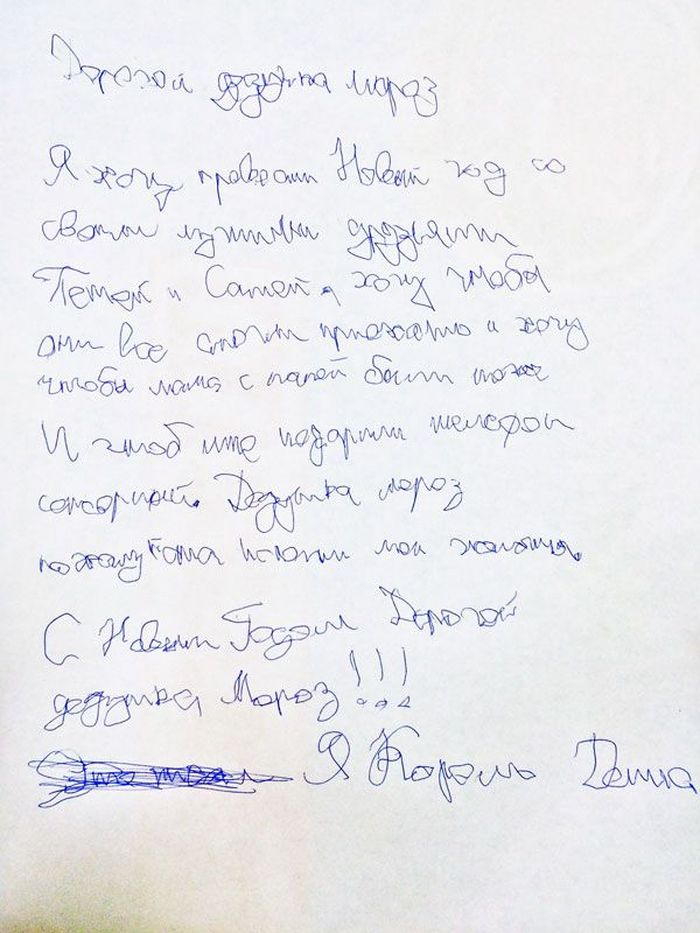 Дорогой дедушка мороз
Я хочу провести Новый год со
своими лучшими друзьями
Петей и Сашей, хочу чтобы
они все смогли приехать и хочу
чтобы мама с папой были тоже
И чтоб мне подарили телефон
сенсорный. Дедушка мороз
пожалуйста исполни мои желания.
С Новым Годом Дорогой
дедушка Мороз!!!
Я Король Дима